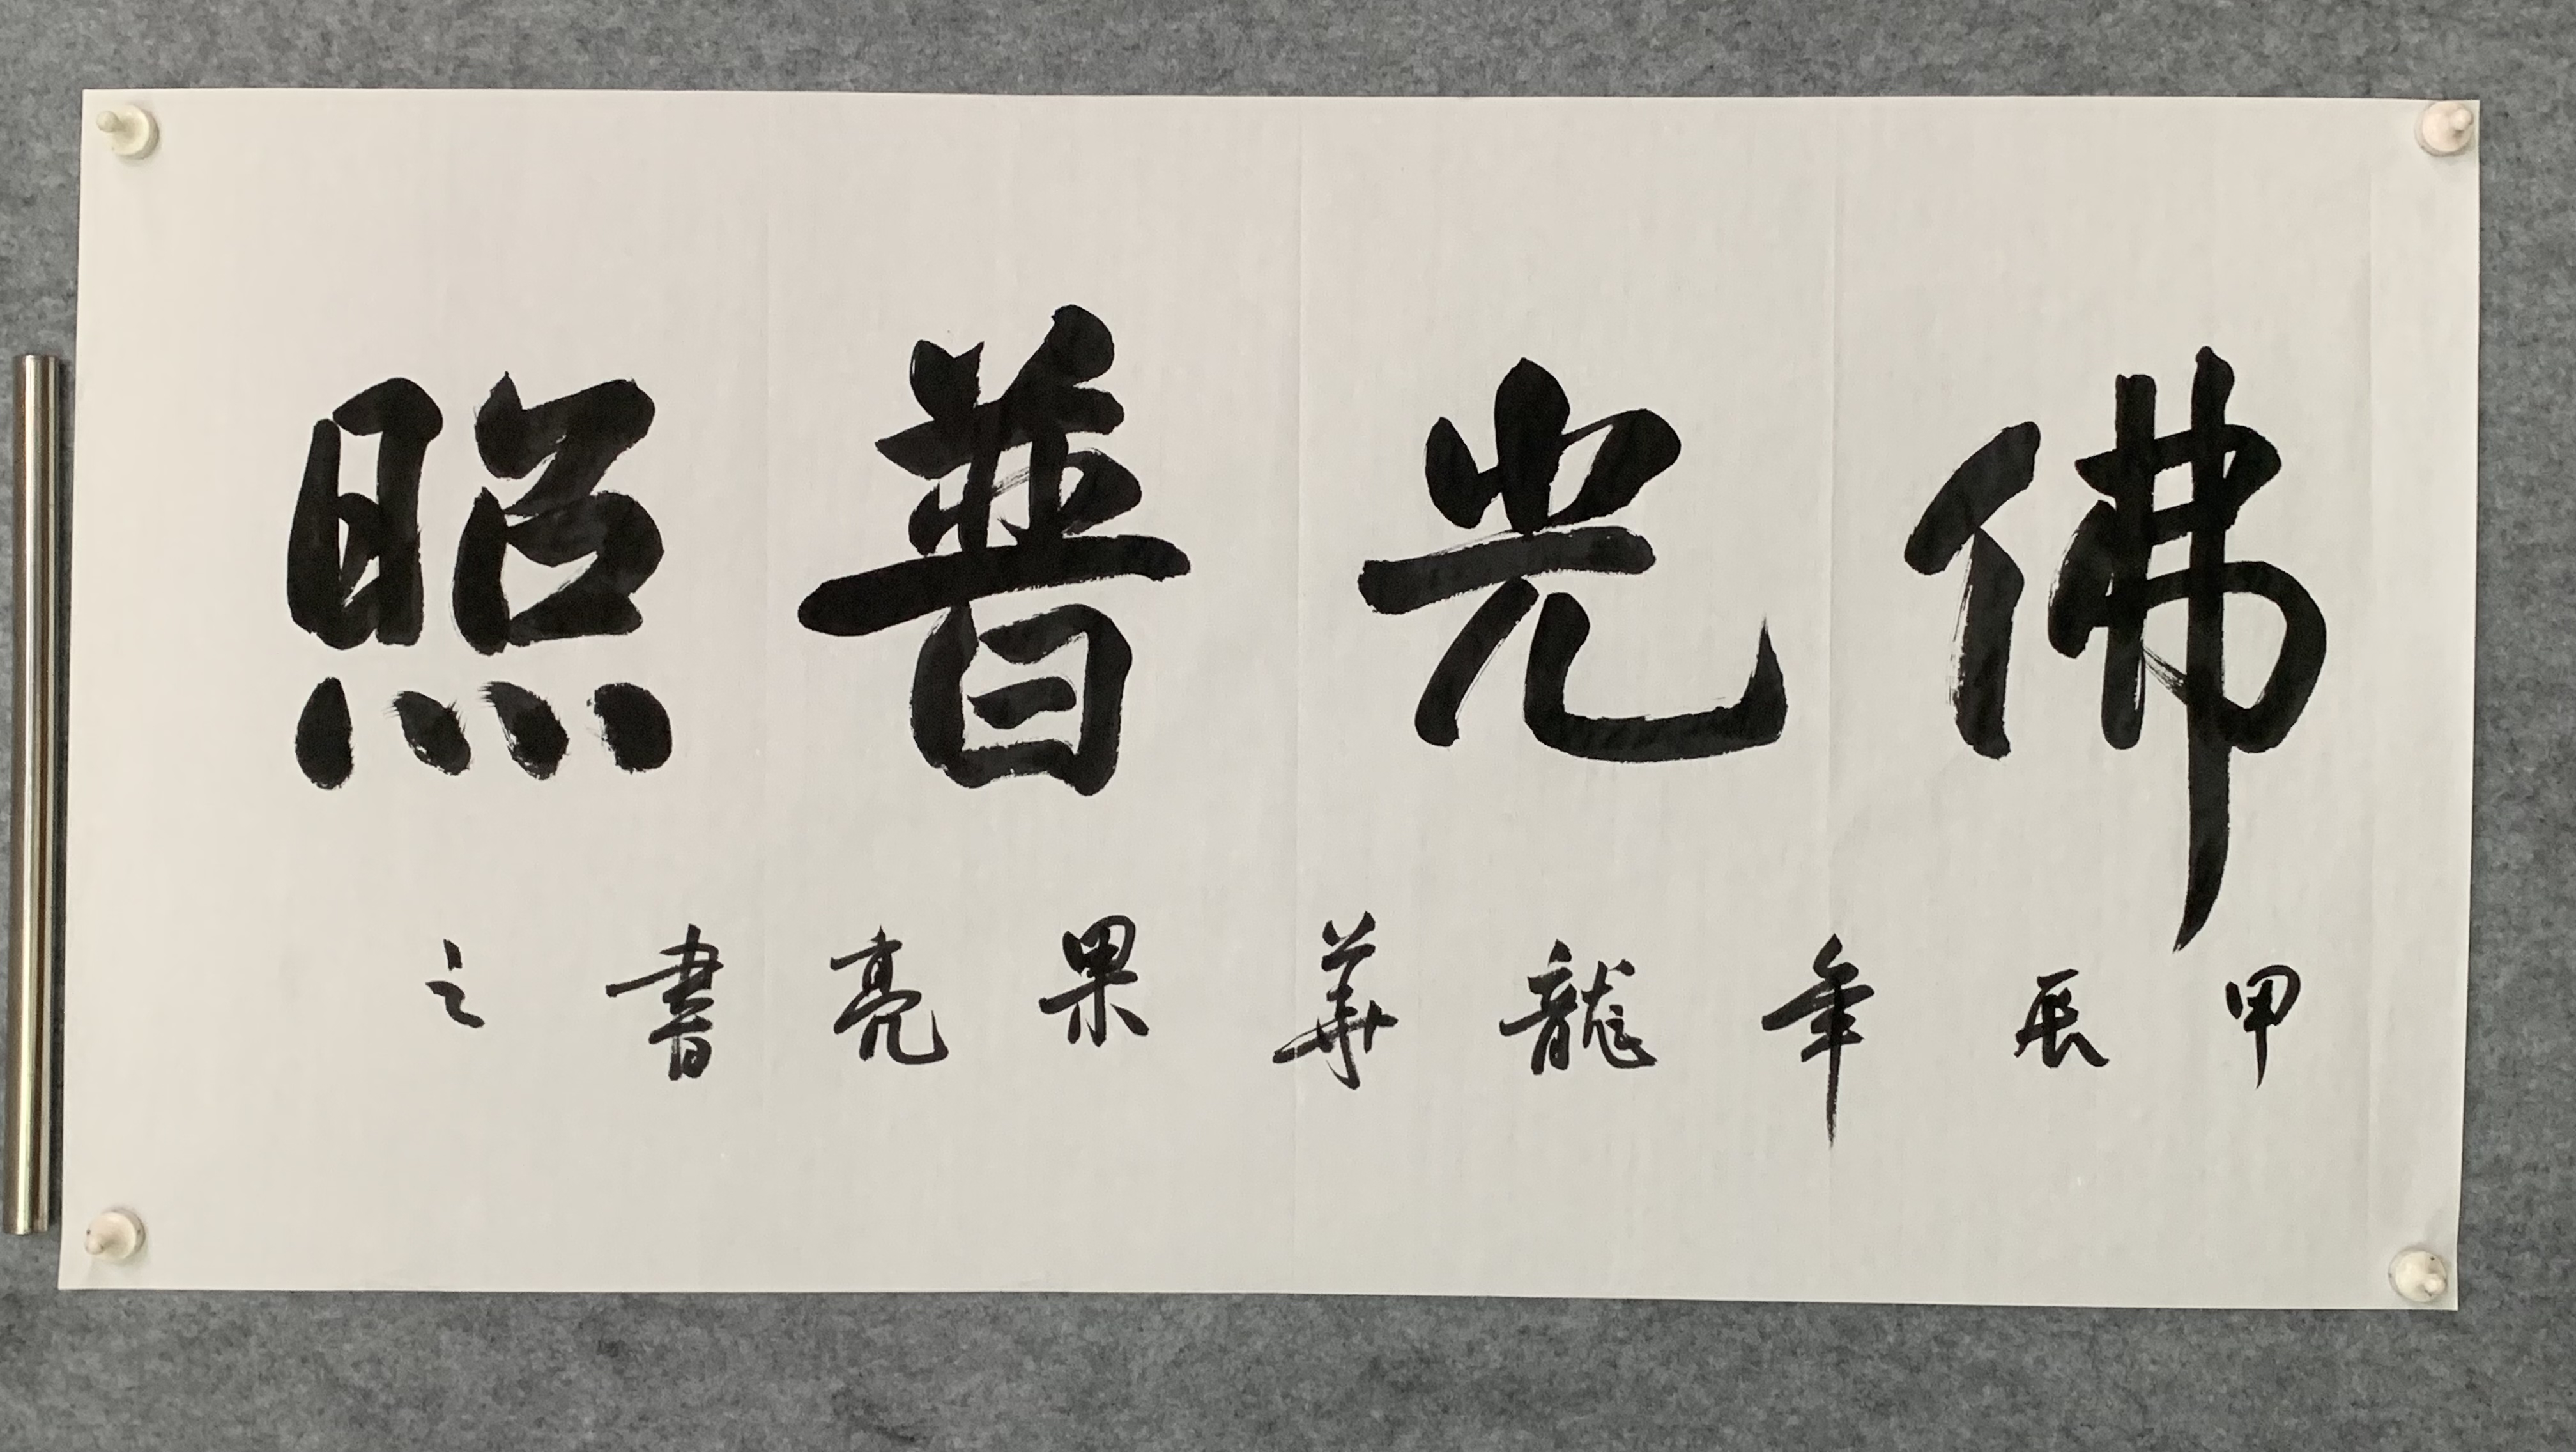 佛光普照
甲辰年龍華果亮書之